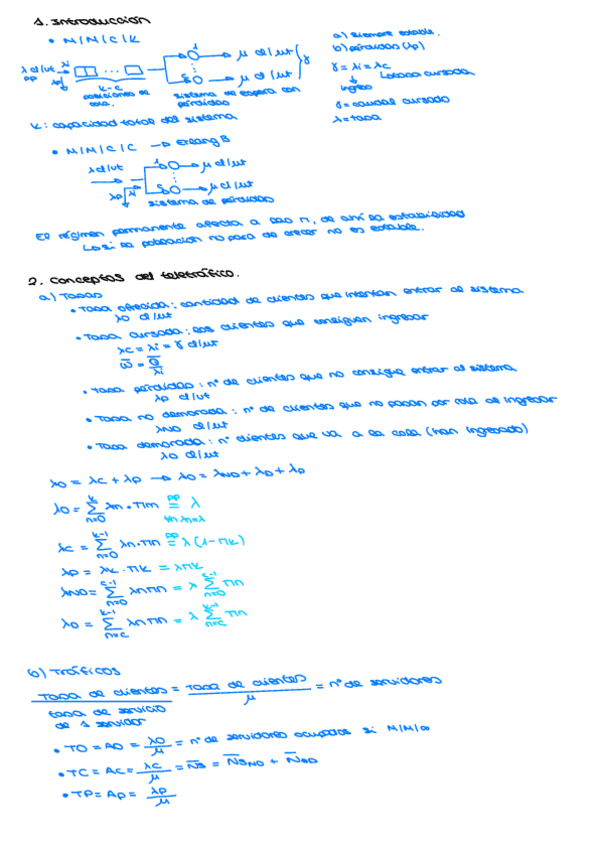 1. Introducción
• M/M/C/K
a) Siempre estable.
b) pérdidas (λp)
λ cl/ut
PP
λi
λp
1
μ cl/ut
γ
μ cl/ut
K-C
posiciones de
cola.
sistema de espera con
pérdidas
γ = λi = λc
Ingreso
tasa cursada
γ = caudal cursado
λ = tasa
K: capacidad total del sistema
• M/M/C/C → Erlang B
λ cl/ut
1
μ cl/ut
λp
λi
μ cl/ut
sistema de pérdidas
El régimen permanente afecta a los n, de ahí la estabilidad
Lo si la población no para de crecer no es estable.
2. Conceptos del teletráfico.
a) Tasas
• Tasa ofrecida: cantidad de clientes que intentan entrar al sistema
λo cl/ut
• Tasa cursada: los clientes que consiguen ingresar
λc = λi = γ cl/ut
W̄ = Q̄/λi
• Tasa pérdidas: nº de clientes que no consigue entrar al sistema
λp cl/ut
• Tasa no demorada: nº de clientes que no pasan por cola al ingresar
λND cl/ut
• Tasa demorada: nº clientes que va a la cola (han ingresado)
λD cl/ut
λo = λc + λp → λo = λND + λD + λp
λo = Σ(n=0, k) λn · Πn =(PP, ∀n λn=λ) λ
λc = Σ(n=0, k-1) λn · Πn =(PP) λ(1-Πk)
λp = λk · Πk = λΠk
λND = Σ(n=0, c-1) λn Πn = λ Σ(n=0, c-1) Πn
λD = Σ(n=c, k-1) λn Πn = λ Σ(n=c, k-1) Πn
b) Tráficos
Tasa de clientes / tasa de servicio de 1 servidor = Tasa de clientes / μ = nº de servidores
• TO = AO = λo/μ = nº de servidores ocupados si M/M/∞
• TC = AC = λc/μ = N̄s = N̄sND + N̄sD
• TP = AP = λp/μ